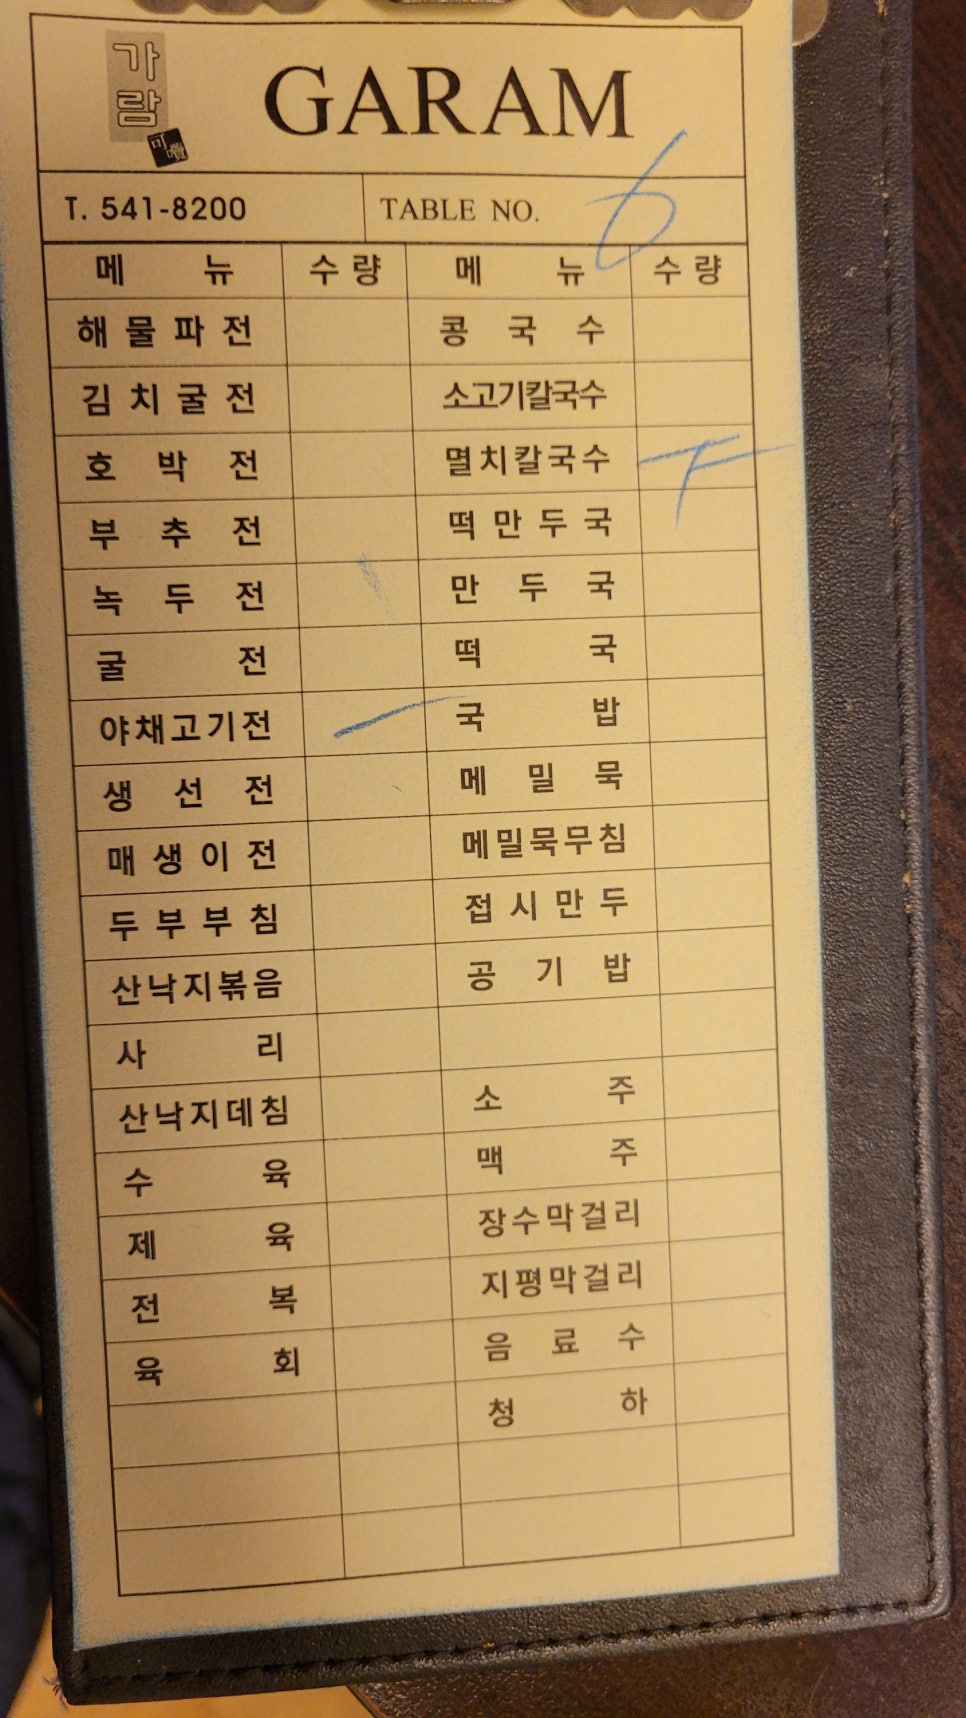 가람
GARAM
T. 541-8200 TABLE NO. 6
메 뉴 수 량 메 뉴 수 량
해 물 파 전 콩 국 수
김 치 굴 전 소고기칼국수
호 박 전 멸치칼국수 ㅜ
부 추 전 떡 만 두 국
녹 두 전 만 두 국
굴 전 떡 국
야채고기전 一 국 밥
생 선 전 메 밀 묵
매 생 이 전 메밀묵무침
두 부 부 침 접 시 만 두
산낙지볶음 공 기 밥
사 리
산낙지데침 소 주
수 육 맥 주
제 육 장수막걸리
전 복 지평막걸리
육 회 음 료 수
청 하